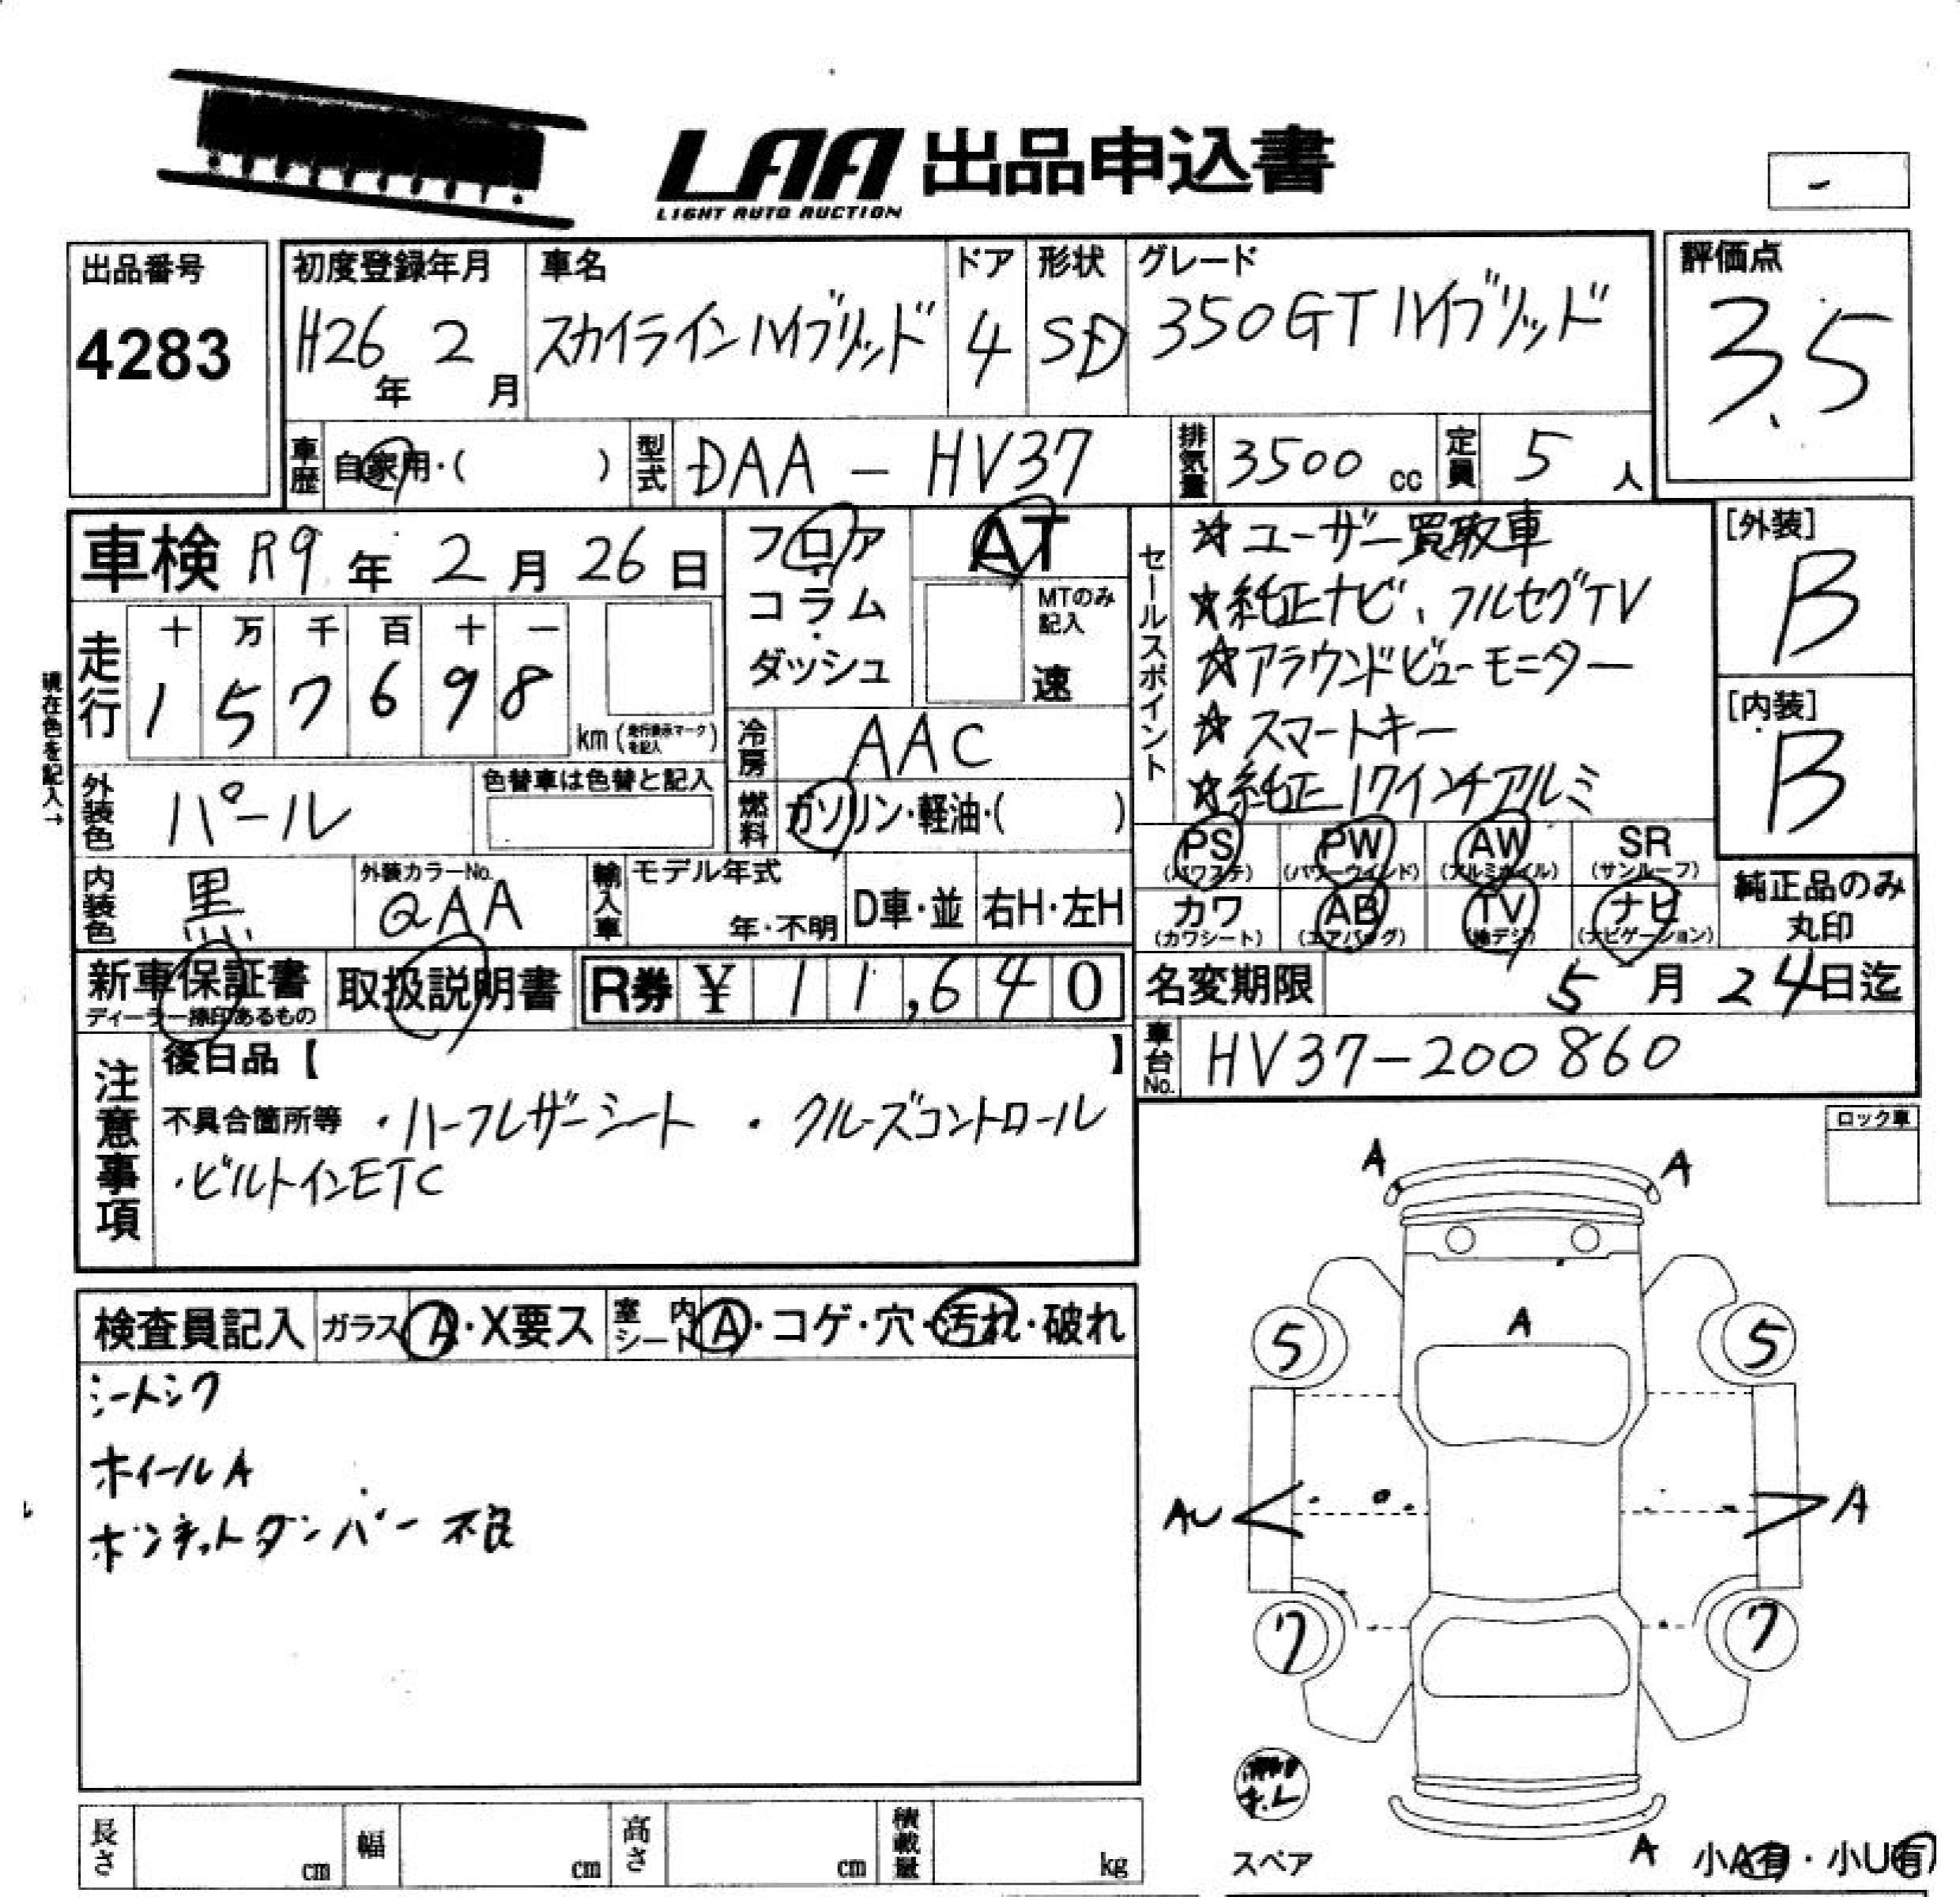 LAA 出品申込書
LIGHT AUTO AUCTION
-
出品番号
4283
初度登録年月
H26年 2月
車名
スカイラインハイブリッド
ドア
4
形状
SD
グレード
350GTハイブリッド
評価点
3.5
車歴 自家用・( )
型式 DAA-HV37
排気量 3500 cc
定員 5 人
車検 R9年 2月 26日
現在色を記入→
走行
十 万 千 百 十 一
1 5 7 6 9 8
km(走行表示マークを記入)
フロア・コラム・ダッシュ
AT
MTのみ記入
速
冷房 AAC
燃料 ガソリン・軽油・( )
セールスポイント
☆ユーザー買取車
☆純正ナビ、フルセグTV
☆アラウンドビューモニター
☆スマートキー
☆純正17インチアルミ
[外装]
B
[内装]
B
外装色 パール
色替車は色替と記入
内装色 黒
外装カラーNo.
QAA
輸入車 モデル年式
年・不明
D車・並 右H・左H
PS (パワステ)
PW (パワーウインド)
AW (アルミホイル)
SR (サンルーフ)
カワ (カワシート)
AB (エアバッグ)
TV (地デジ)
ナビ (ナビゲーション)
純正品のみ丸印
新車保証書
ディーラー捺印あるもの
取扱説明書
R券 ¥ 11,640
名変期限 5月 24日迄
車台No. HV37-200860
注意事項
後日品【 】
不具合箇所等 ・ハーフレザーシート ・クルーズコントロール
・ビルトインETC
ロック車
検査員記入 ガラス A・X要ス
室内シート A・コゲ・穴・汚れ・破れ
シートシワ
ホイールA
ボンネットダンパー不良
A A
A
5 5
AU A
7 7
スペア
A 小A有・小U有
長さ cm
幅 cm
高さ cm
積載量 kg